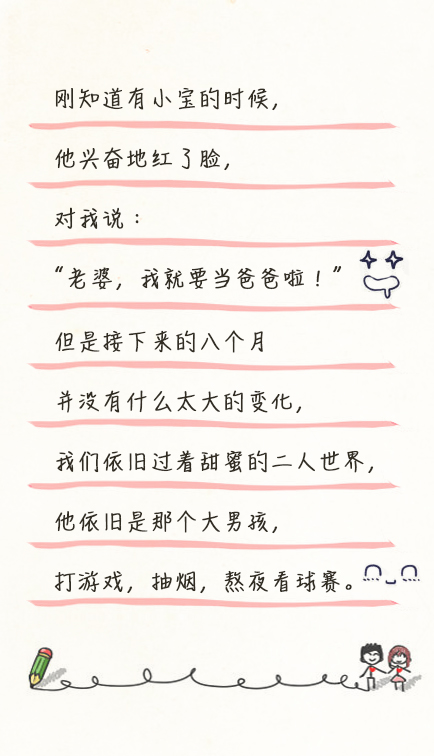 刚知道有小宝的时候，
他兴奋地红了脸，
对我说：
“老婆，我就要当爸爸啦！”
但是接下来的八个月
并没有什么太大的变化，
我们依旧过着甜蜜的二人世界，
他依旧是那个大男孩，
打游戏，抽烟，熬夜看球赛。